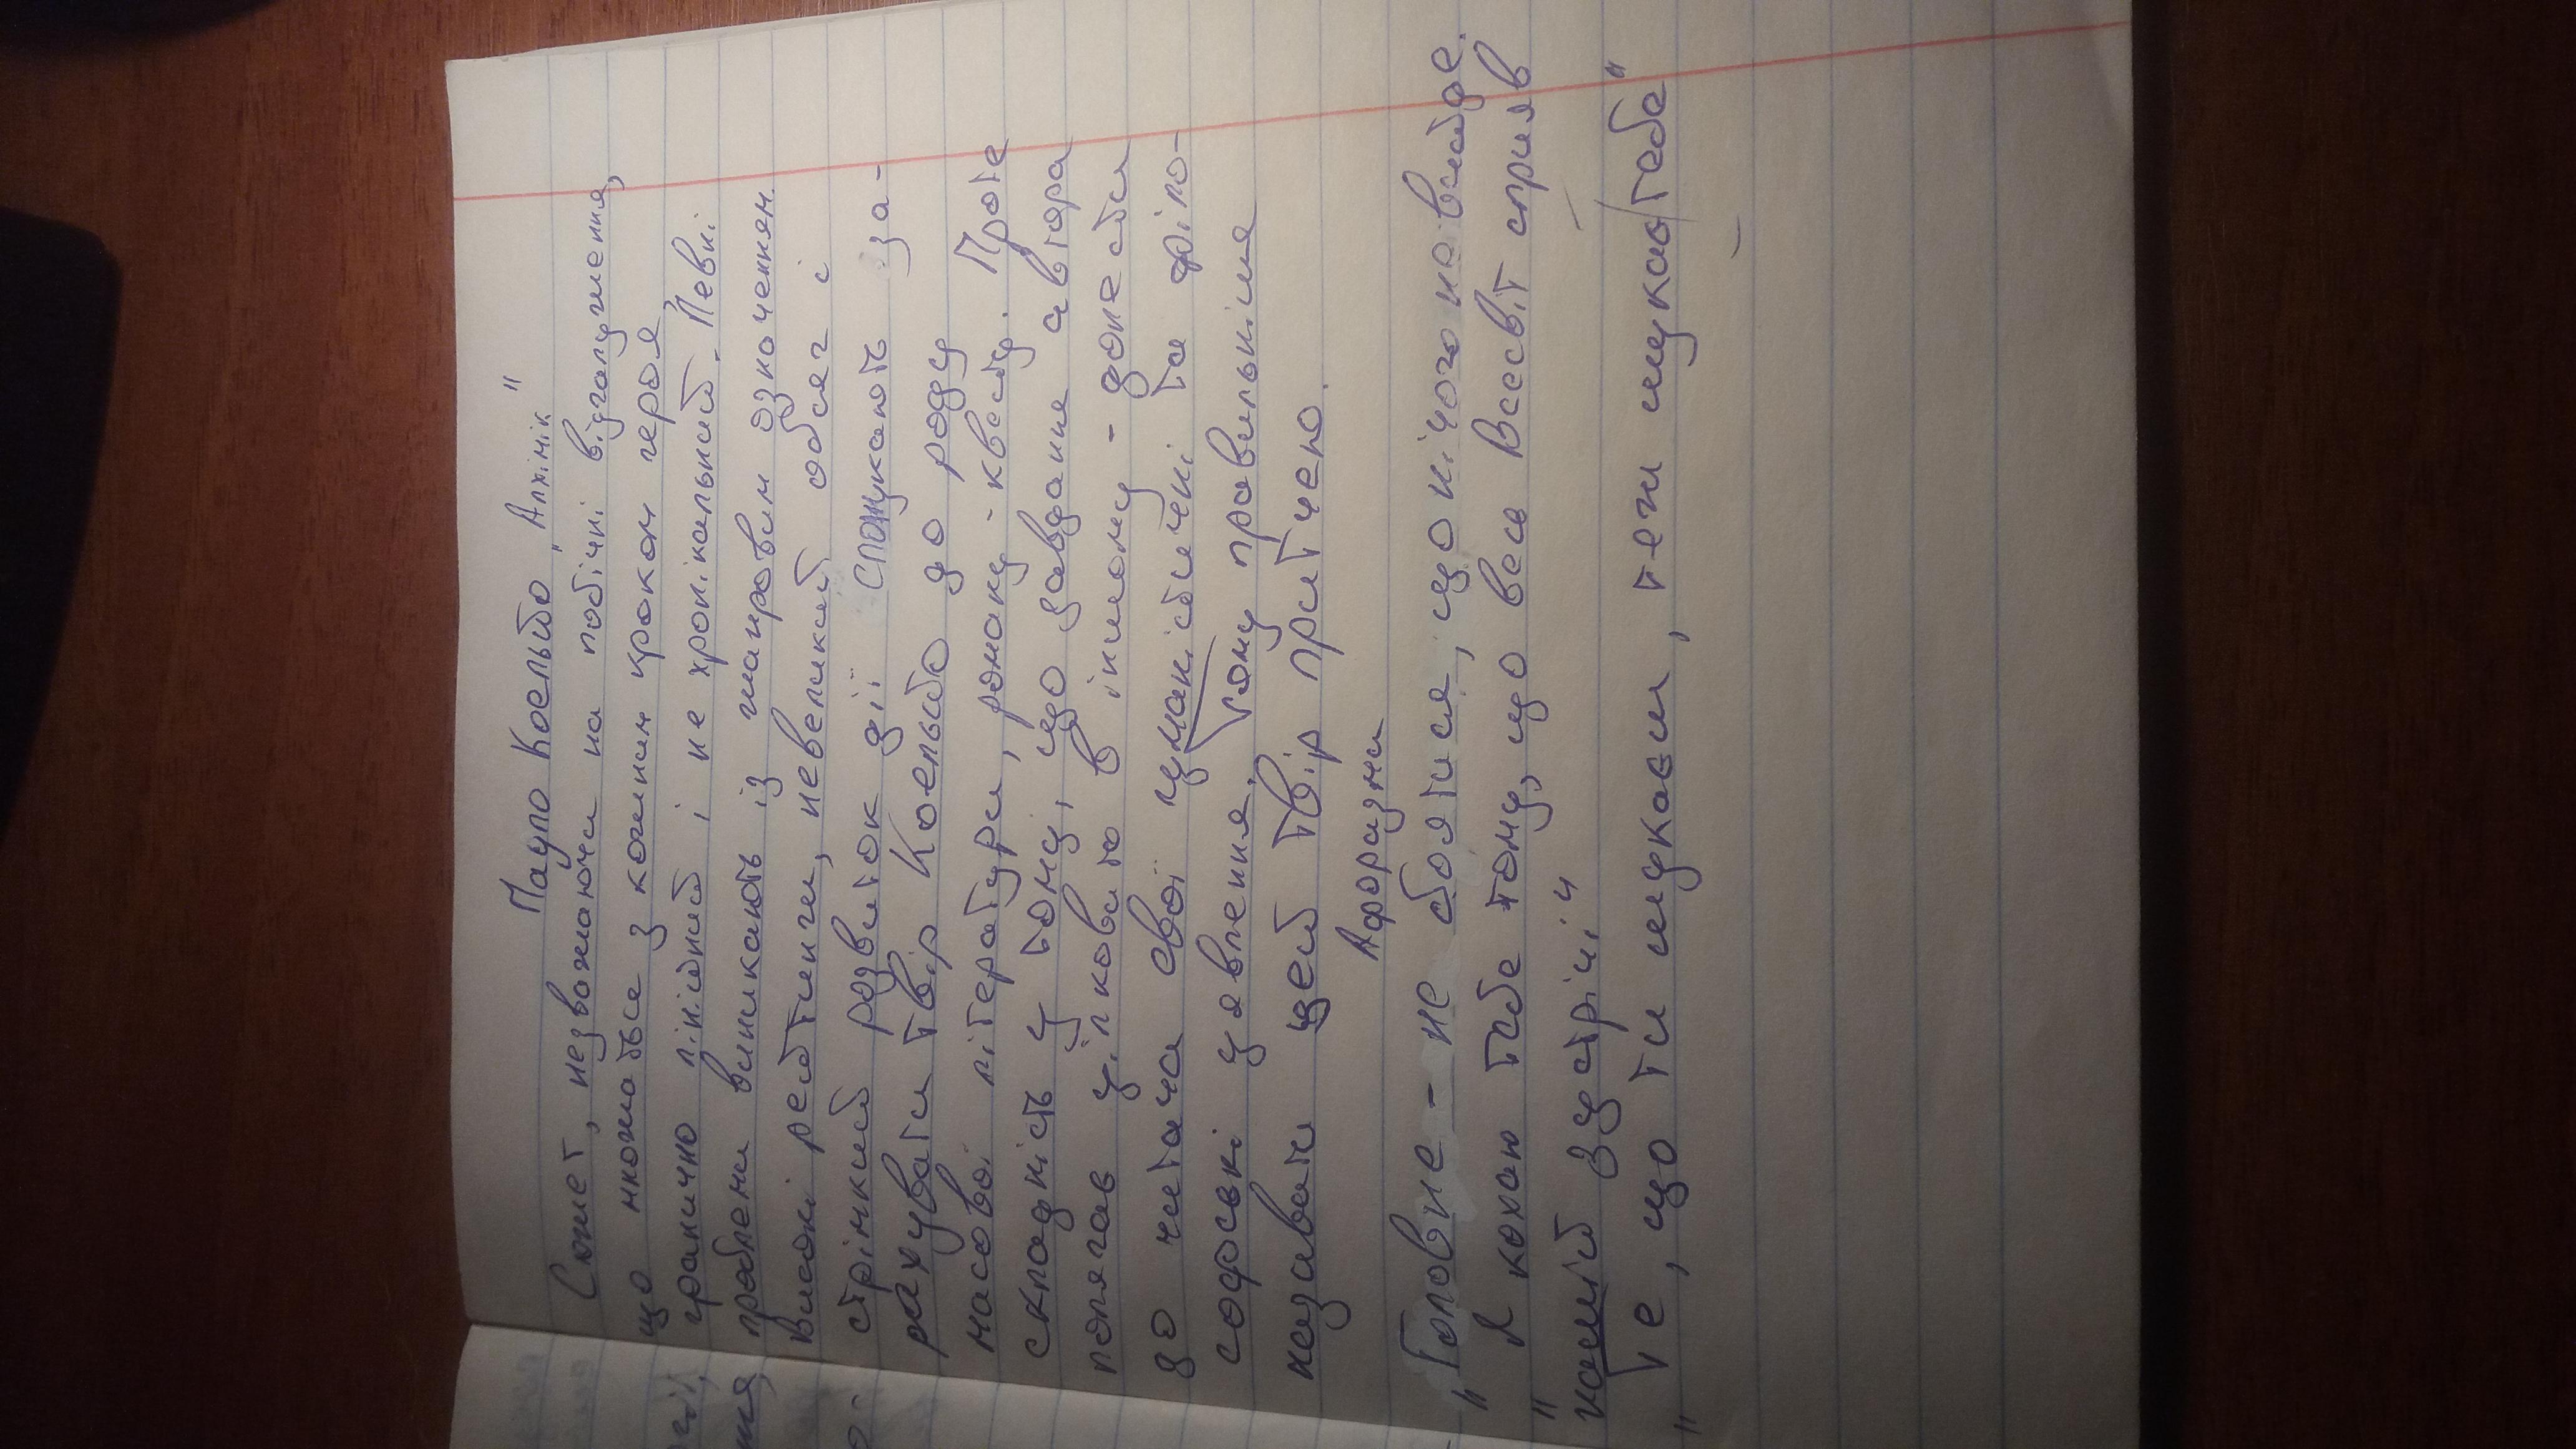 Пауло Коельйо „Алхімік"
Сюжет, незважаючи на побічні відгалуження,
що множаться з кожним кроком героя,
гранично лінійний і не хронікальний. Певні
проблеми виникають із жанровим означенням.
Високі рейтинги, невеликий обсяг і
стрімкий розвиток дії спонукають за-
рахувати твір Коельйо до роду
масової літератури, роману-квесту. Проте
складність у тому, що завдання автора
полягає цілковито в іншому - донести
до читача свої гуманістичні та філо-
софські уявлення, тому правильніше
називати цей твір притчею.
Афоризми
„Головне - не боятися, що нічого не вийде.
„Я кохаю тебе тому, що весь Всесвіт сприяв
нашій зустрічі"
„Те, що ти шукаєш, теж шукає тебе"